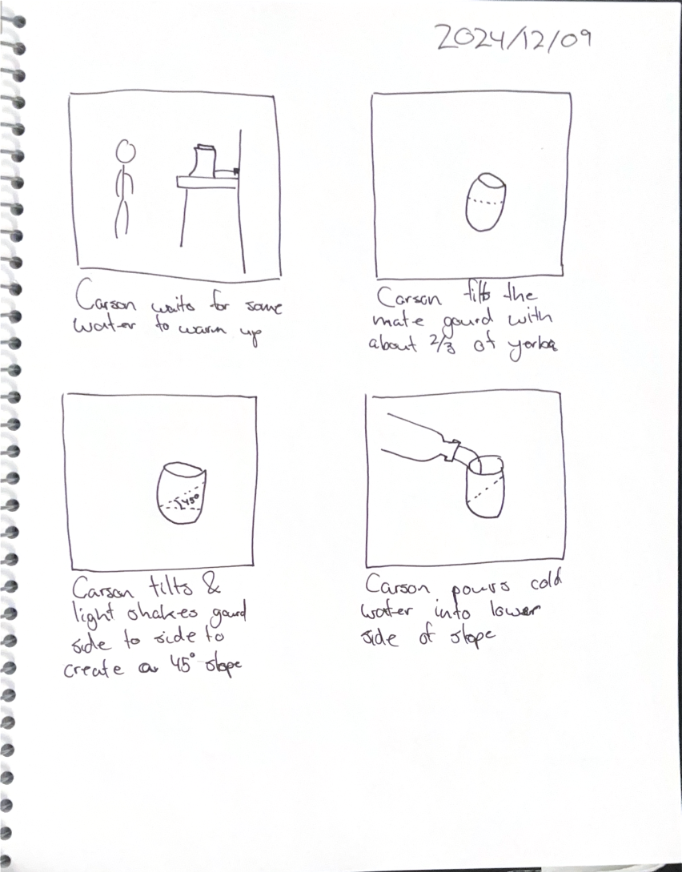 2024/12/09
Carson waits for some
water to warm up
Carson tilts the
mate gourd with
about 2/3 of yerba
45°
Carson tilts &
light shakes gourd
side to side to
create a 45° slope
Carson pours cold
water into lower
side of slope